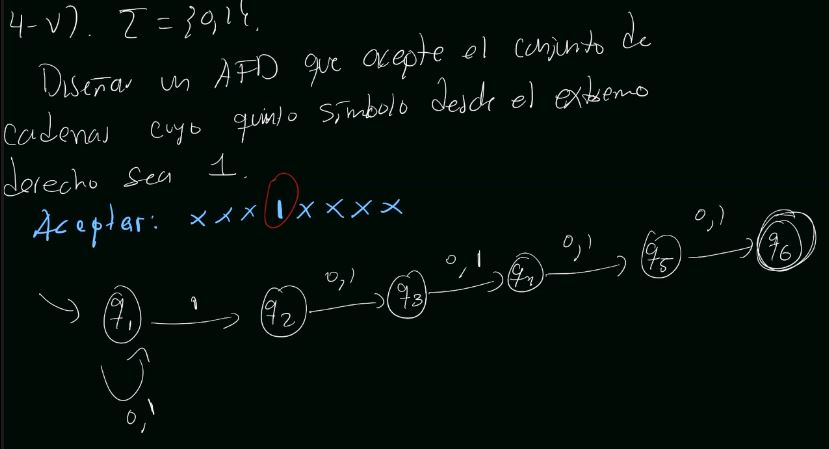 4-v). Σ = {0,1}.
Diseñar un AFD que acepte el conjunto de
cadenas cuyo quinto símbolo desde el extremo
derecho sea 1.
Aceptar: x x x 1 x x x x
0,1
0,1
0,1
0,1
1
q1 q2 q3 q4 q5 q6
0,1